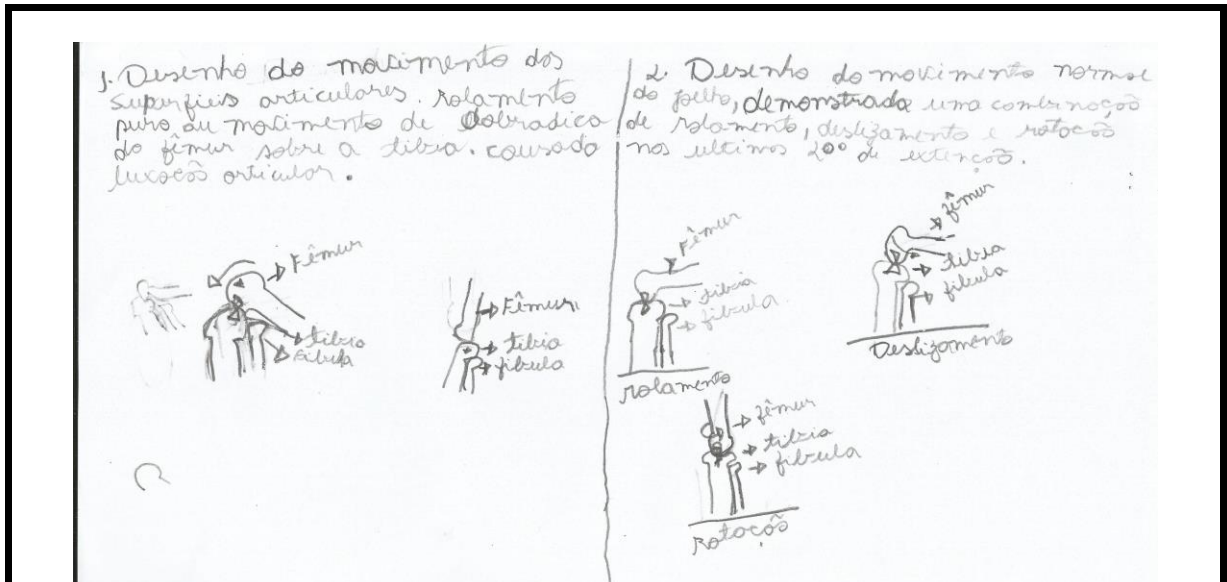 1. Desenho do movimento dos
superficies articulares. Rolamento
puro ou movimento de dobradica
do fêmur sobre a tibia. cousado
luxação articular.
Fêmur
tibia
Fibula
Fêmur
tibia
fibula
2. Desenho do movimento normal
do joelho, demonstrada uma combinação
de rolamento, deslizamento e rotação
nos ultimos 20º de extenção.
Fêmur
tibia
fibula
rolamento
fêmur
tibia
fibula
Deslizamento
fêmur
tibia
fibula
Rotação